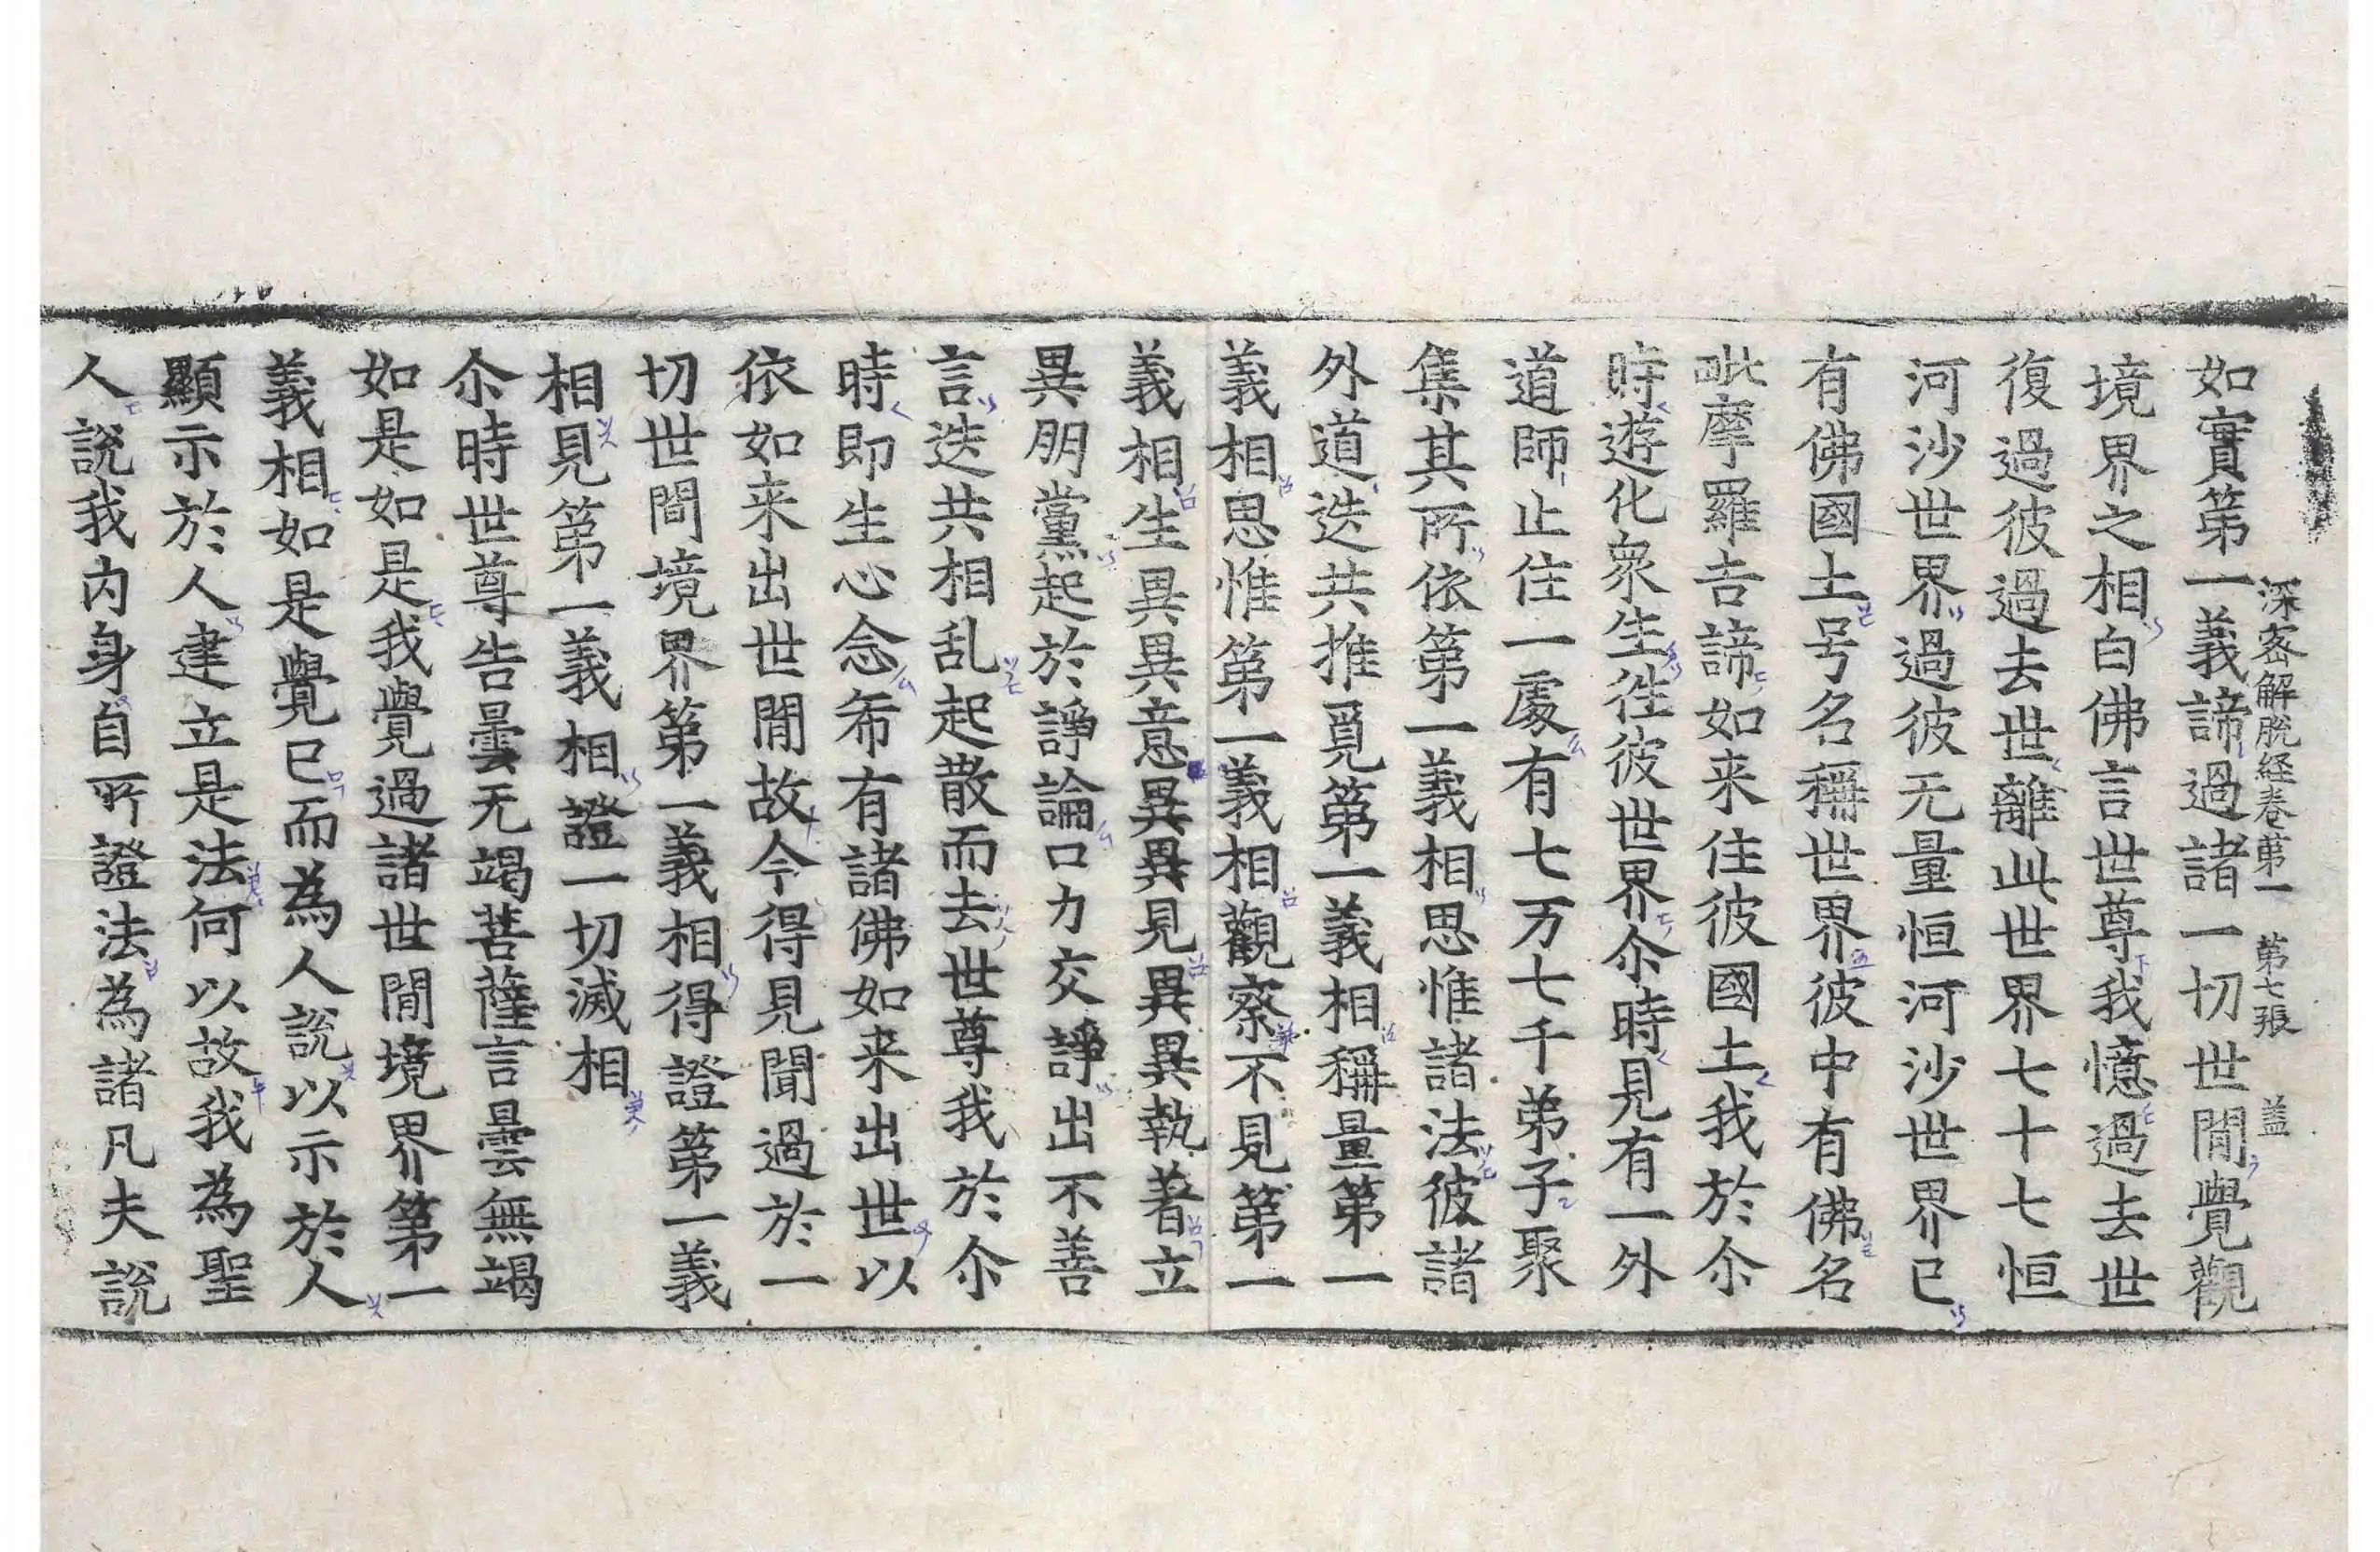 深密解脫経卷第一 第七張 盖
如實第一義諦過諸一切世間覺觀
境界之相白佛言世尊我憶過去世
復過彼過去世離此世界七十七恒
河沙世界過彼无量恒河沙世界已
有佛國土号名稱世界彼中有佛名
毗摩羅吉諦如来住彼國土我於尒
時遊化衆生徃彼世界尒時見有一外
道師止住一處有七万七千弟子聚
集其所依第一義相思惟諸法彼諸
外道迭共推覓第一義相稱量第一
義相思惟第一義相觀察不見第一
義相生異異意異異見異異執著立
異朋黨起於諍論口力交諍出不善
言迭共相乱起散而去世尊我於尒
時即生心念希有諸佛如来出世以
依如来出世間故今得見聞過於一
切世間境界第一義相得證第一義
相見第一義相證一切滅相
尒時世尊告曇无竭菩薩言曇無竭
如是如是我覺過諸世間境界第一
義相如是覺已而為人說以示於人
顯示於人建立是法何以故我為聖
人說我内身自所證法為諸凡夫說